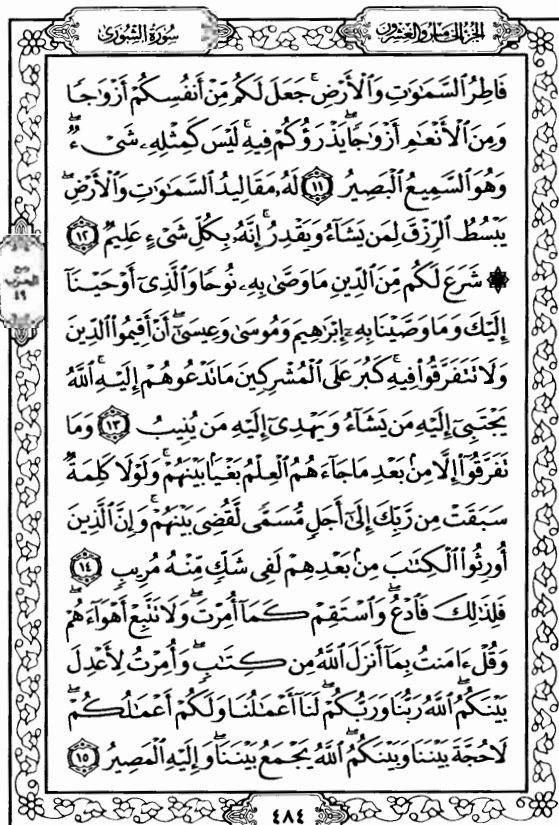 الجزء الخامس والعشرون
سورة الشورى
فَاطِرُ السَّمَٰوَٰتِ وَالْأَرْضِ ۚ جَعَلَ لَكُم مِّنْ أَنفُسِكُمْ أَزْوَٰجًا
وَمِنَ الْأَنْعَٰمِ أَزْوَٰجًا ۖ يَذْرَؤُكُمْ فِيهِ ۚ لَيْسَ كَمِثْلِهِۦ شَىْءٌ ۖ
وَهُوَ السَّمِيعُ الْبَصِيرُ ١١ لَهُۥ مَقَالِيدُ السَّمَٰوَٰتِ وَالْأَرْضِ ۖ
يَبْسُطُ الرِّزْقَ لِمَن يَشَآءُ وَيَقْدِرُ ۚ إِنَّهُۥ بِكُلِّ شَىْءٍ عَلِيمٌ ١٢
۞ شَرَعَ لَكُم مِّنَ الدِّينِ مَا وَصَّىٰ بِهِۦ نُوحًا وَالَّذِىٓ أَوْحَيْنَآ
إِلَيْكَ وَمَا وَصَّيْنَا بِهِۦٓ إِبْرَٰهِيمَ وَمُوسَىٰ وَعِيسَىٰٓ ۖ أَنْ أَقِيمُوا۟ الدِّينَ
وَلَا تَتَفَرَّقُوا۟ فِيهِ ۚ كَبُرَ عَلَى الْمُشْرِكِينَ مَا تَدْعُوهُمْ إِلَيْهِ ۚ اللَّهُ
يَجْتَبِىٓ إِلَيْهِ مَن يَشَآءُ وَيَهْدِىٓ إِلَيْهِ مَن يُنِيبُ ١٣ وَمَا
تَفَرَّقُوٓا۟ إِلَّا مِنۢ بَعْدِ مَا جَآءَهُمُ الْعِلْمُ بَغْيًۢا بَيْنَهُمْ ۚ وَلَوْلَا كَلِمَةٌ
سَبَقَتْ مِن رَّبِّكَ إِلَىٰٓ أَجَلٍ مُّسَمًّى لَّقُضِىَ بَيْنَهُمْ ۚ وَإِنَّ الَّذِينَ
أُورِثُوا۟ الْكِتَٰبَ مِنۢ بَعْدِهِمْ لَفِى شَكٍّ مِّنْهُ مُرِيبٍ ١٤
فَلِذَٰلِكَ فَادْعُ ۖ وَاسْتَقِمْ كَمَآ أُمِرْتَ ۖ وَلَا تَتَّبِعْ أَهْوَآءَهُمْ ۖ
وَقُلْ ءَامَنتُ بِمَآ أَنزَلَ اللَّهُ مِن كِتَٰبٍ ۖ وَأُمِرْتُ لِأَعْدِلَ
بَيْنَكُمُ ۖ اللَّهُ رَبُّنَا وَرَبُّكُمْ ۖ لَنَآ أَعْمَٰلُنَا وَلَكُمْ أَعْمَٰلُكُمْ ۖ
لَا حُجَّةَ بَيْنَنَا وَبَيْنَكُمُ ۖ اللَّهُ يَجْمَعُ بَيْنَنَا ۖ وَإِلَيْهِ الْمَصِيرُ ١٥
ربع
الحزب
٤٩
٤٨٤